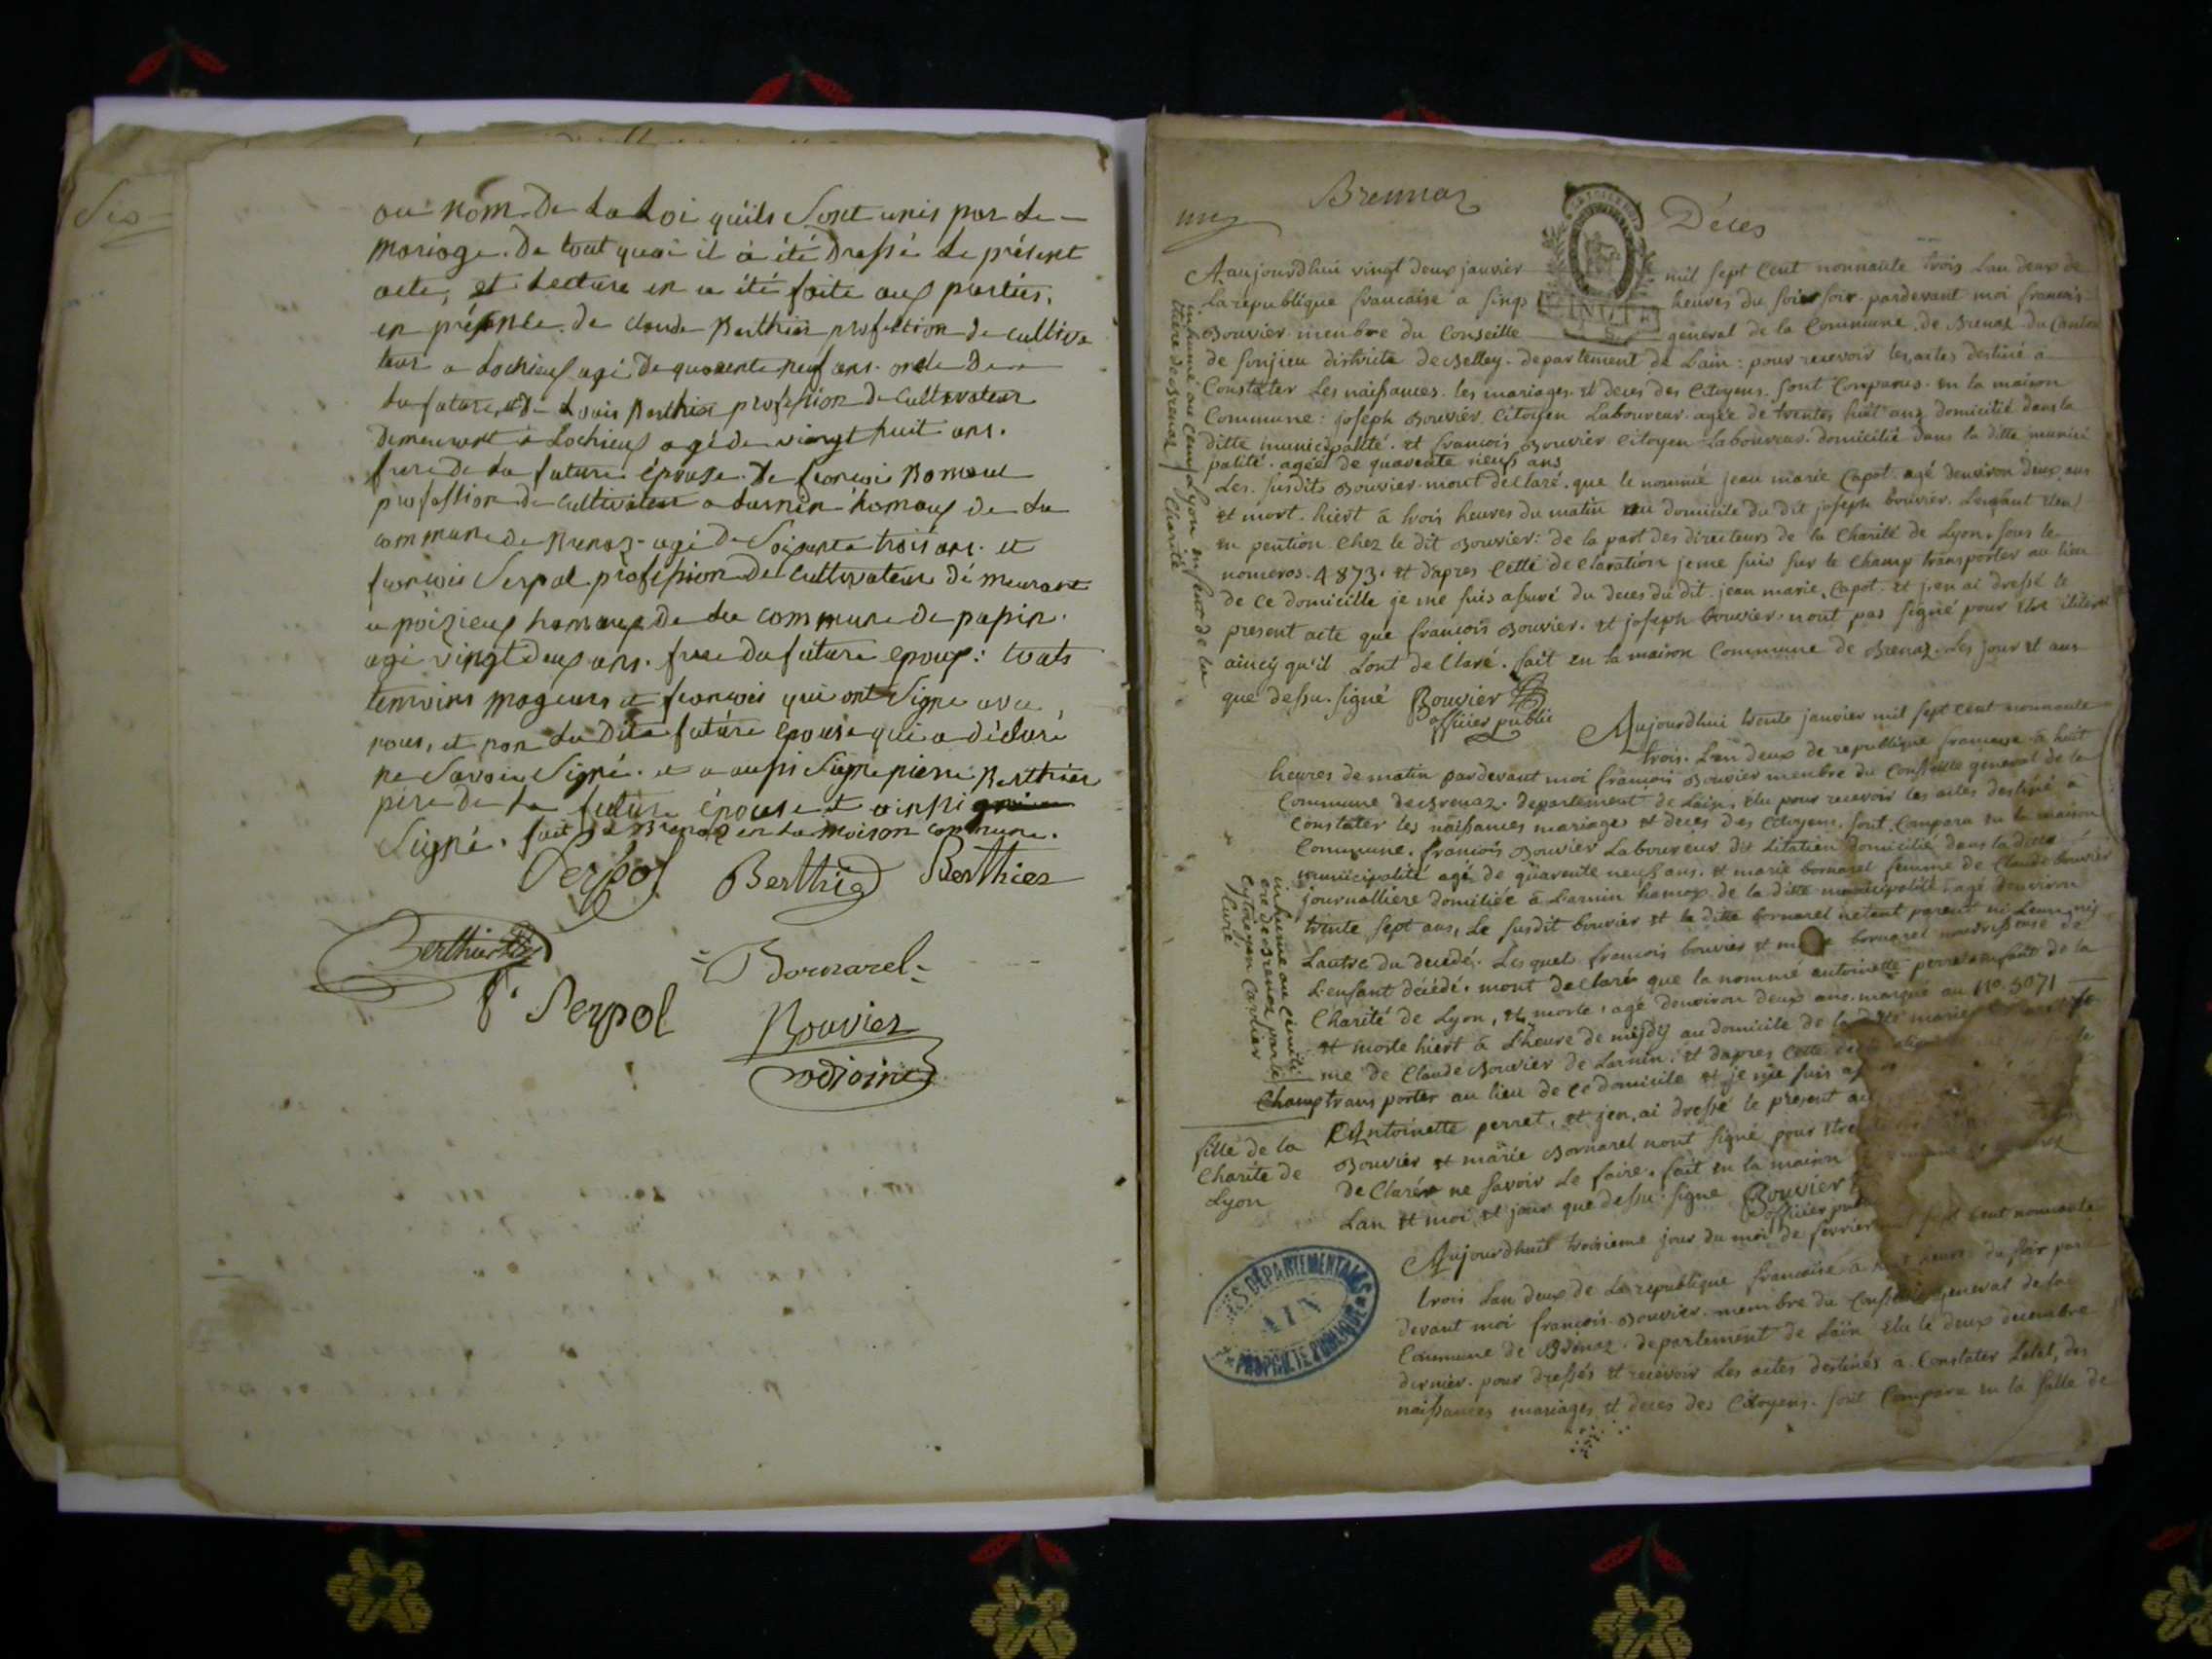 Sis
au nom de la Loi quils sont unis par le
mariage. De tout quoi il à été Dressé le présent
acte, et Lecture en a été faite aux parties,
en présence de claude Berthier profession de cultiva
teur a Lochieux agé de quarente neuf ans. oncle De
la future, et de Louis Berthier profession de Cultivateur
Demeurant à Lochieux agé de vingt huit ans.
frere de la future épouse. De francois Bornarel
profession de Cultivateur a Larnin hamaux de la
commune de Brenaz agé De Soixante trois ans. et
francois Serpol profession de Cultivateur démeurant
a poizieux hamaux de la commune de
agé vingt deux ans. frere du future epoux: touts
temoins mageurs et francois qui ont Signe avec
nous, et non La Dite future épouse qui a déclaré
ne Savoir Signé. et a aussi Signe pierre Berthier
père de la future épouse et ainssi
Signé. fait à Brenaz en La maison commune.
Serpol Berthier Berthier
Berthier
Bornarel
f. Serpol
Bouvier
adjoint
Brennaz
Déces
Aaujourdhui vingt deux janvier mil sept Cent nonnante trois Lan deux de
La republique francaise a sinq heures du soir soir pardevant moi francois
Bouvier menbre du Conseille general de la Commune de Brenaz du Canton
de sonjieu districte de Belley. departement de Lain: pour recevoir les actes destiné a
Constater Les naissances. les mariages. et deces des Citoyens. sont Comparus en la maison
Commune: joseph Bouvier Citoyen Laboureur agée de trentes huit ans domicilié dans la
ditte municipalité. et francois Bouvier Citoyen Laboureur domicilié dans la ditte munici
palité. agéé de quarente neufs ans
Les susdits Bouvier mont declaré. que le nommé jean marie Capot agé denviron deux ans
et mort hiert à trois heures du matin au domicile du dit joseph bouvier. Lenfant étent
en pention Chez le dit Bouvier: de la part des directeurs de la Charité de Lyon. sous le
numeros 4873. et dapres Cette declaration je me suis sur le Champ transporter au lieu
de Ce domicille je me suis assuré du deces du dit jean marie Capot et jen ai dressé le
present acte que francois Bouvier. et joseph bouvier nont pas signé pour etre
aincy qu'il Lont declaré. fait en la maison Commune de Brenaz. Les jour et ans
que dessu. signé Bouvier
officier public
inhumé au
tiere de Brenaz
Lyon enfent de la
Charité
Aujourdhui trente janvier mil sept Cent nonnante
trois. Lan deux de republique francaise à huit
heures de matin pardevant moi francois Bouvier menbre du Conseille general de la
Commune de Brenaz. departement de Lain, élu pour recevoir les actes destiné a
Constater les naissances mariages et deces des Citoyens. sont Compara en la maison
Commune. francois Bouvier Laboureur dit Litatien domicilié dans la ditte
municipalité agé de quarente neuf ans. et marie bornarel femme de Claude bouvier
journalliere domiliée à Larnin hamox de la ditte municipalité agé denviron
trente sept ans, Le susdit bouvier et la ditte bornarel netent parent ni Leun, niy
Lautre du decedé. Lesquels francois bouvier et bornarel nourrissense de
Lenfant décédé. mont declaré que la nommé antoinette perret enfant de la
Charité de Lyon, et morte, agé denviron deux ans. marqué au No. 5071
et morte hiert à Lheure de miydy au domicile de la ditte marie
me de Claude Bouvier de Larnin. et dapres Cette
Champ trans porter au lieu de Ce domicile et je me suis
Antoinette perret, et jen, ai dressé le present
Bouvier et marie Bornarel nont signé pour etre
de Clarér ne savoir Le faire. fait en la maison
Lan et moi et jour que dessu. signe Bouvier
officier
inhumé au cimiti
ere de Brenaz par le
Citoiyen Carlier
Curé
fille de la
Charite de
Lyon
Aujourdhuit troisieme jour du moi de fevrier sept Cent nonnante
trois Lan deux de La republique francoise a heures du soir par
devant moi francois Bouvier. membre du Conseil general de la
Commune de Brenaz. departement de Lain élu le deux decembre
dernier. pour dressés et recevoir Les actes destinés à Constater Letat, des
naissances mariages, et deces des Citoyens. sont Compara en la salle de
DEPARTEMENTALES
AIN
PROPRIETE PUBLIQUE